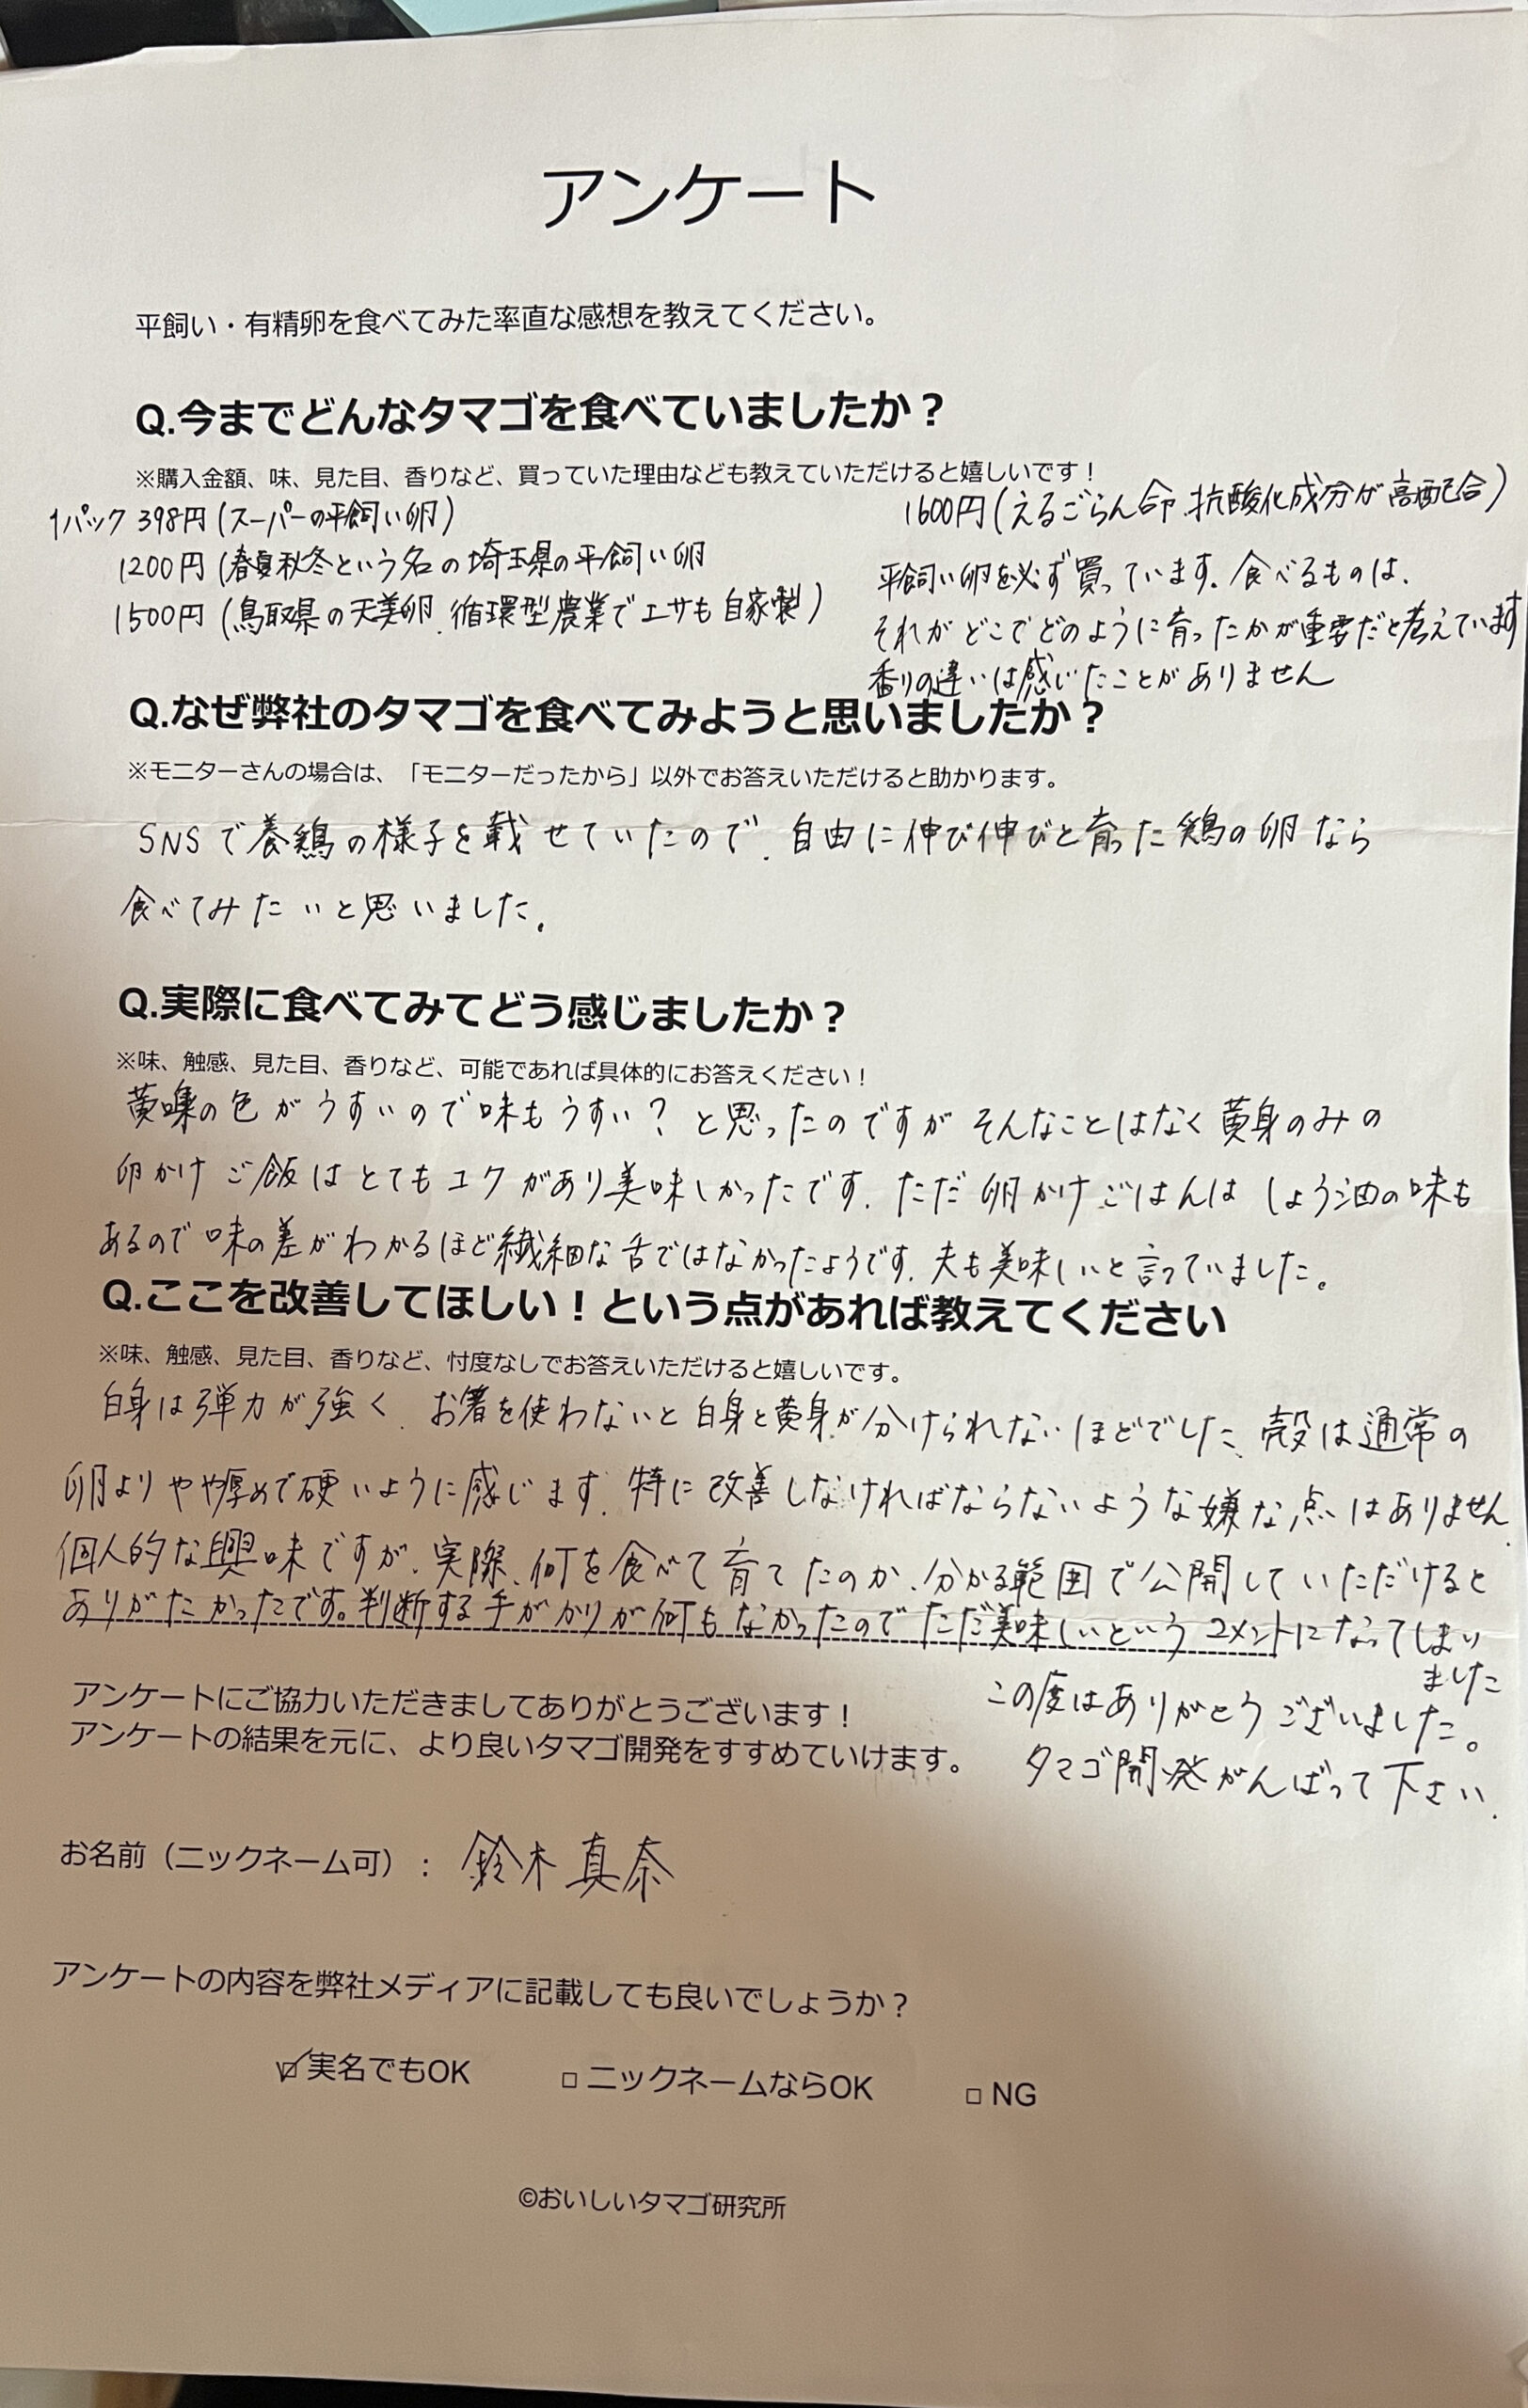 アンケート
平飼い・有精卵を食べてみた率直な感想を教えてください。
Q.今までどんなタマゴを食べていましたか？
※購入金額、味、見た目、香りなど、買っていた理由なども教えていただけると嬉しいです！
1パック 398円(スーパーの平飼い卵)
1200円(春夏秋冬という名の埼玉県の平飼い卵
1500円(鳥取県の天美卵.循環型農業でエサも自家製)
1600円(えるごらん命.抗酸化成分が高配合)
平飼い卵を必ず買っています.食べるものは.
それがどこでどのように育ったかが重要だと考えています
香りの違いは感じたことがありません
Q.なぜ弊社のタマゴを食べてみようと思いましたか？
※モニターさんの場合は、「モニターだったから」以外でお答えいただけると助かります。
SNSで養鶏の様子を載せていたので.自由に伸び伸びと育った鶏の卵なら
食べてみたいと思いました.
Q.実際に食べてみてどう感じましたか？
※味、触感、見た目、香りなど、可能であれば具体的にお答えください！
黄味の色がうすいので味もうすい？と思ったのですがそんなことはなく黄身のみの
卵かけご飯はとてもコクがあり美味しかったです.ただ卵かけごはんはしょう油の味も
あるので味の差がわかるほど繊細な舌ではなかったようです.夫も美味しいと言っていました。
Q.ここを改善してほしい！という点があれば教えてください
※味、触感、見た目、香りなど、忖度なしでお答えいただけると嬉しいです。
白身は弾力が強く.お箸を使わないと白身と黄身が分けられないほどでした、殻は通常の
卵よりやや厚めで硬いように感じます.特に改善しなければならないような嫌な点はありません.
個人的な興味ですが.実際、何を食べて育てたのか、分かる範囲で公開していただけると
ありがたかったです。判断する手がかりが何もなかったのでただ美味しいというコメントになってしまい
ました
アンケートにご協力いただきましてありがとうございます！
アンケートの結果を元に、より良いタマゴ開発をすすめていけます。
この度はありがとうございました。
タマゴ開発がんばって下さい.
お名前（ニックネーム可）： 鈴木真奈
アンケートの内容を弊社メディアに記載しても良いでしょうか？
☑実名でもOK □ニックネームならOK □NG
©おいしいタマゴ研究所